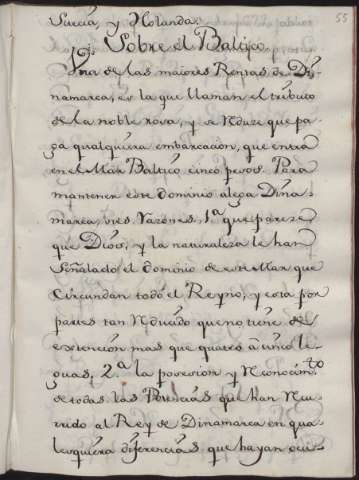 Suecia, y Holanda.
55
Sobre el Baltico.
Una de las maiores Rentas de Di-
namarca, es la que llaman el tributo
de la noble rosa, y se reduze que pa-
ga qualquiera embarcacion, que entra
en el Mar Baltico cinco pesos. Para
mantener este dominio alega Dina-
marca, tres razones, 1ª que pareze
que Dios, y la naturaleza le han
señalado el dominio de este Mar que
Circundan todo el Reyno, y esta por
partes tan reducido que no tiene de
extencion mas que quatro a cinco le-
guas, 2ª la posesion y reconocim.to
de todas las Potencias que han recu-
rrido al Rey de Dinamarca en qua-
lesquiera diferencias que hayan ocu-